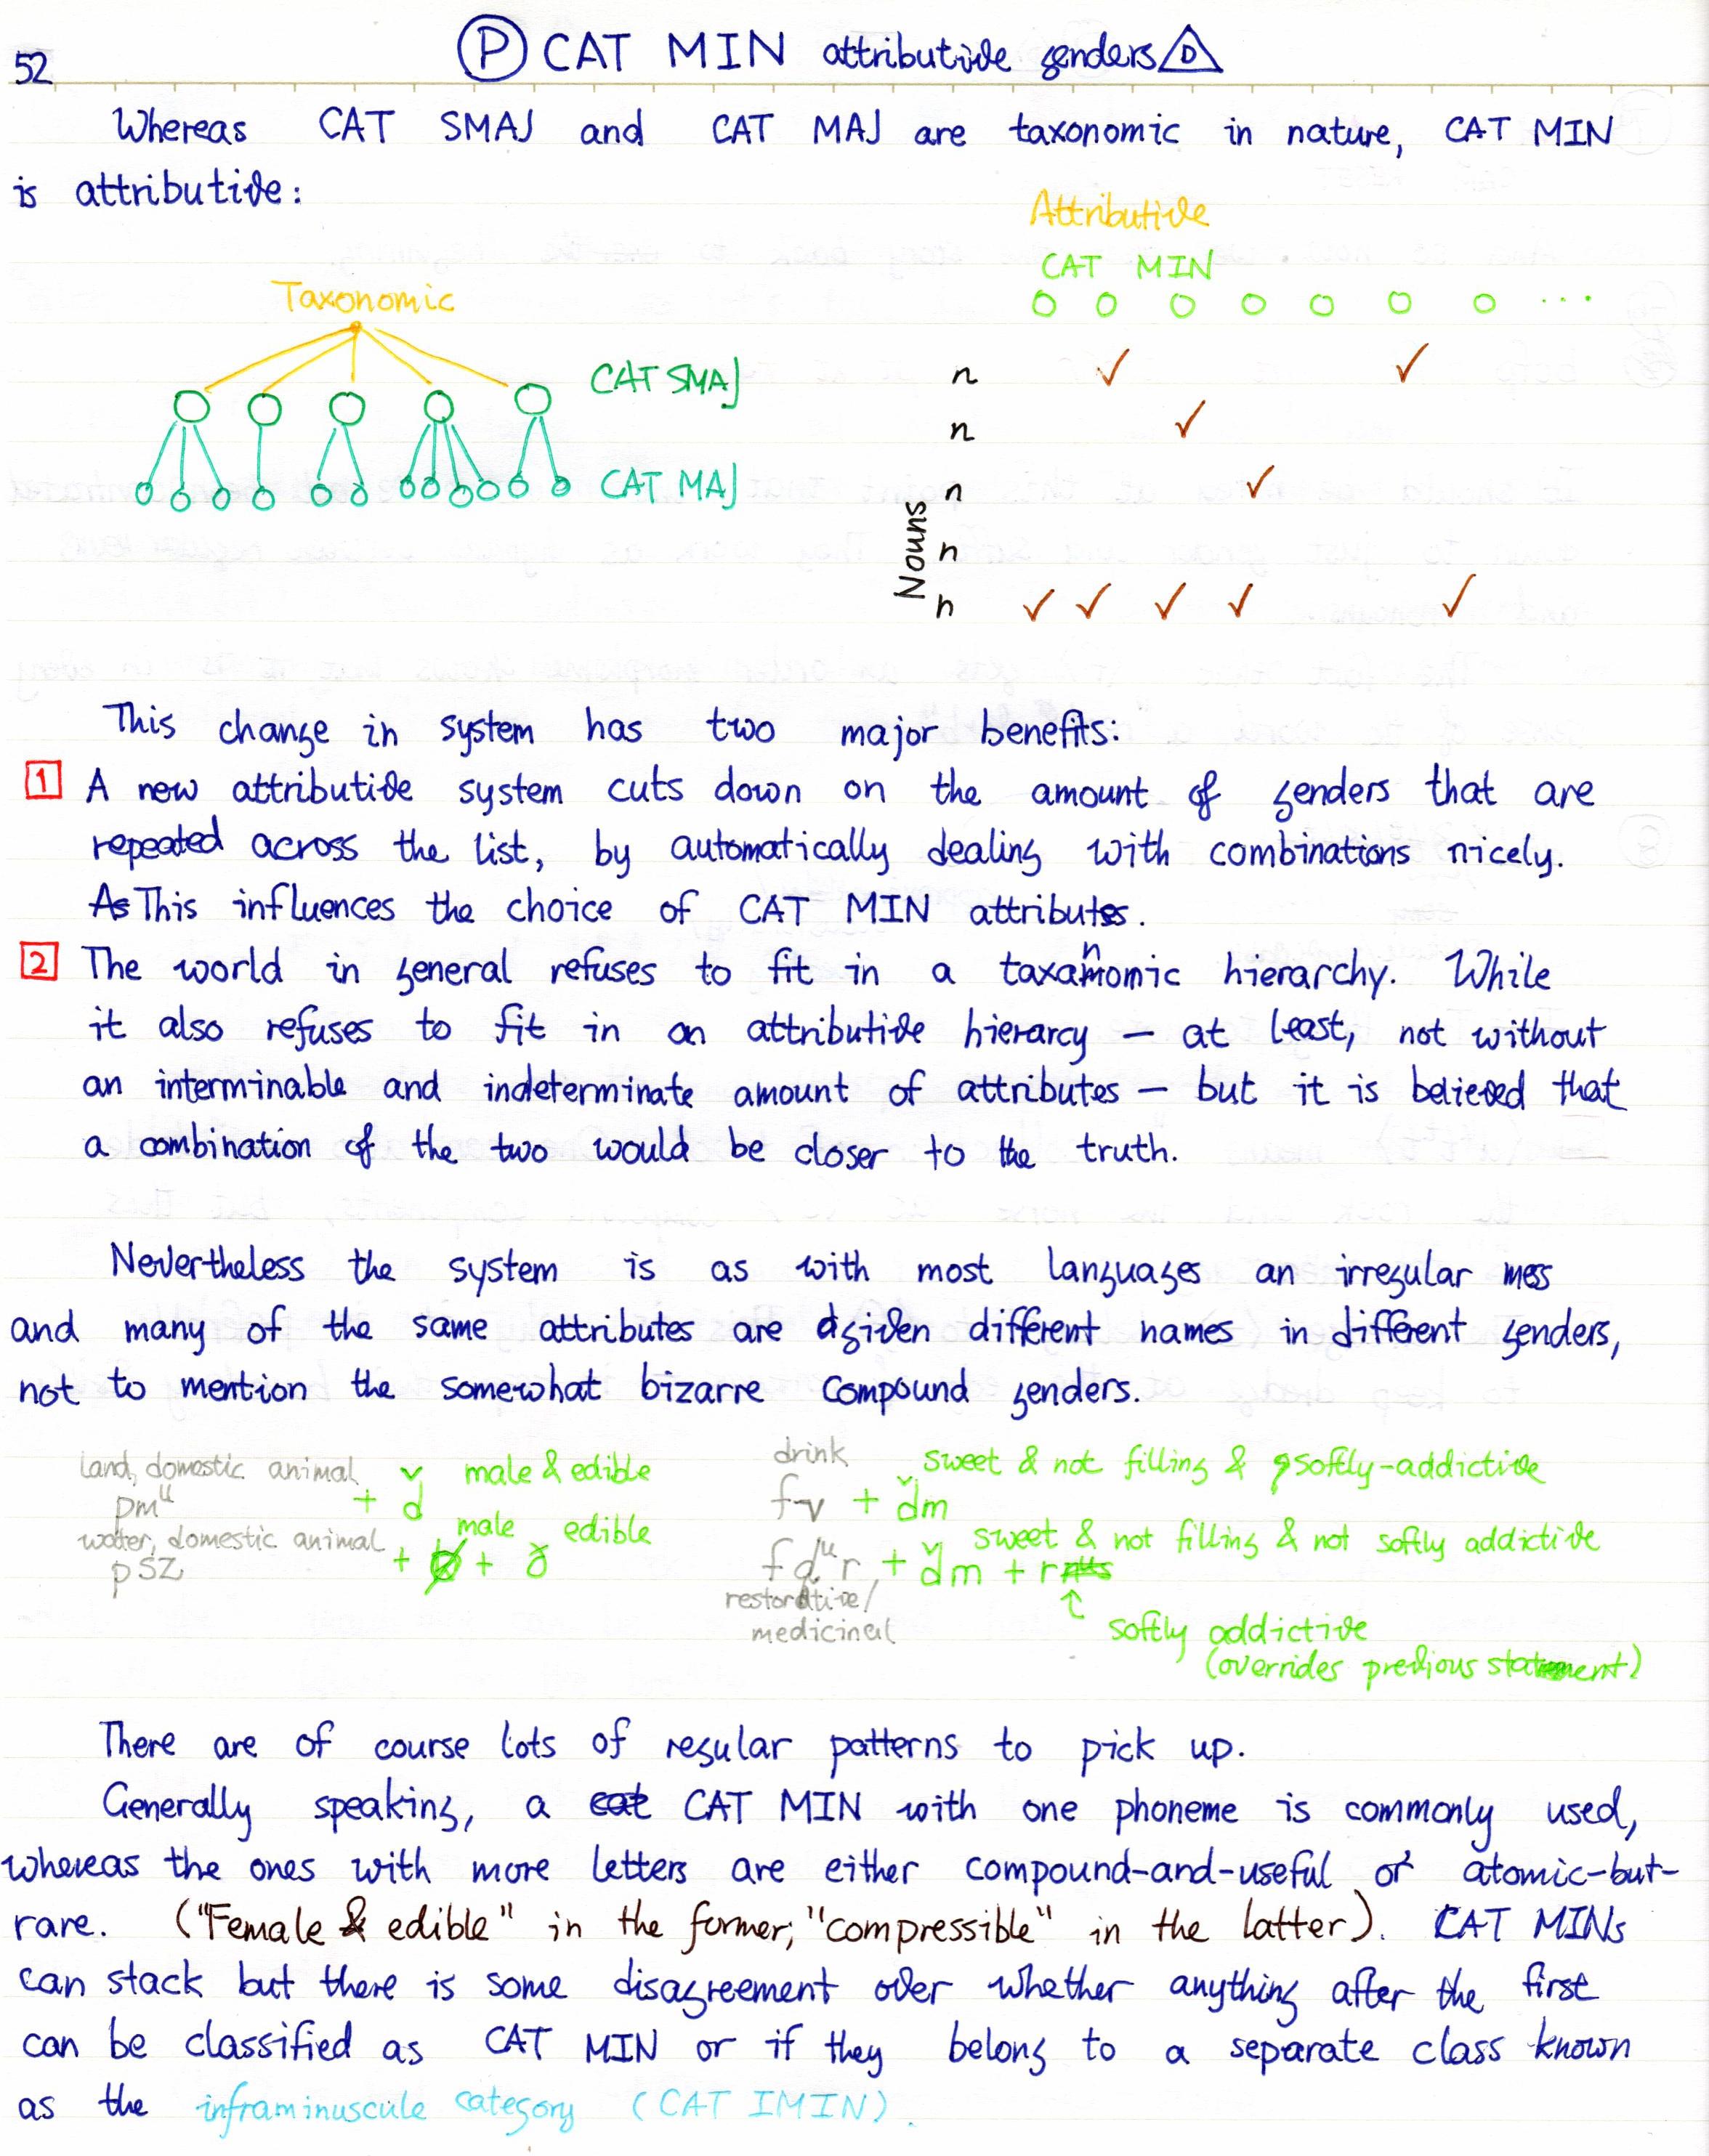 52
Ⓟ CAT MIN attributive genders △D
Whereas CAT SMAJ and CAT MAJ are taxonomic in nature, CAT MIN
is attributive:
Attributive
CAT MIN
Taxonomic
CAT SMAJ
CAT MAJ
n
n
n
n
n
Nouns
This change in system has two major benefits:
1 A new attributive system cuts down on the amount of genders that are
repeated across the list, by automatically dealing with combinations nicely.
As This influences the choice of CAT MIN attributes.
2 The world in general refuses to fit in a taxanomic hierarchy. While
it also refuses to fit in an attributive hierarcy — at least, not without
an interminable and indeterminate amount of attributes — but it is believed that
a combination of the two would be closer to the truth.
Nevertheless the system is as with most languages an irregular mess
and many of the same attributes are given different names in different genders,
not to mention the somewhat bizarre compound genders.
land, domestic animal
pmᵘ + ď male & edible
water, domestic animal male edible
psz
drink sweet & not filling & softly-addictive
fv + ďm
sweet & not filling & not softly addictive
fdᵘr + ďm + r
restorative/
medicinal
softly addictive
(overrides previous statement)
There are of course lots of regular patterns to pick up.
Generally speaking, a cat CAT MIN with one phoneme is commonly used,
whereas the ones with more letters are either compound-and-useful or atomic-but-
rare. ("Female & edible" in the former; "compressible" in the latter). CAT MINs
can stack but there is some disagreement over whether anything after the first
can be classified as CAT MIN or if they belong to a separate class known
as the inframinuscule category (CAT IMIN).